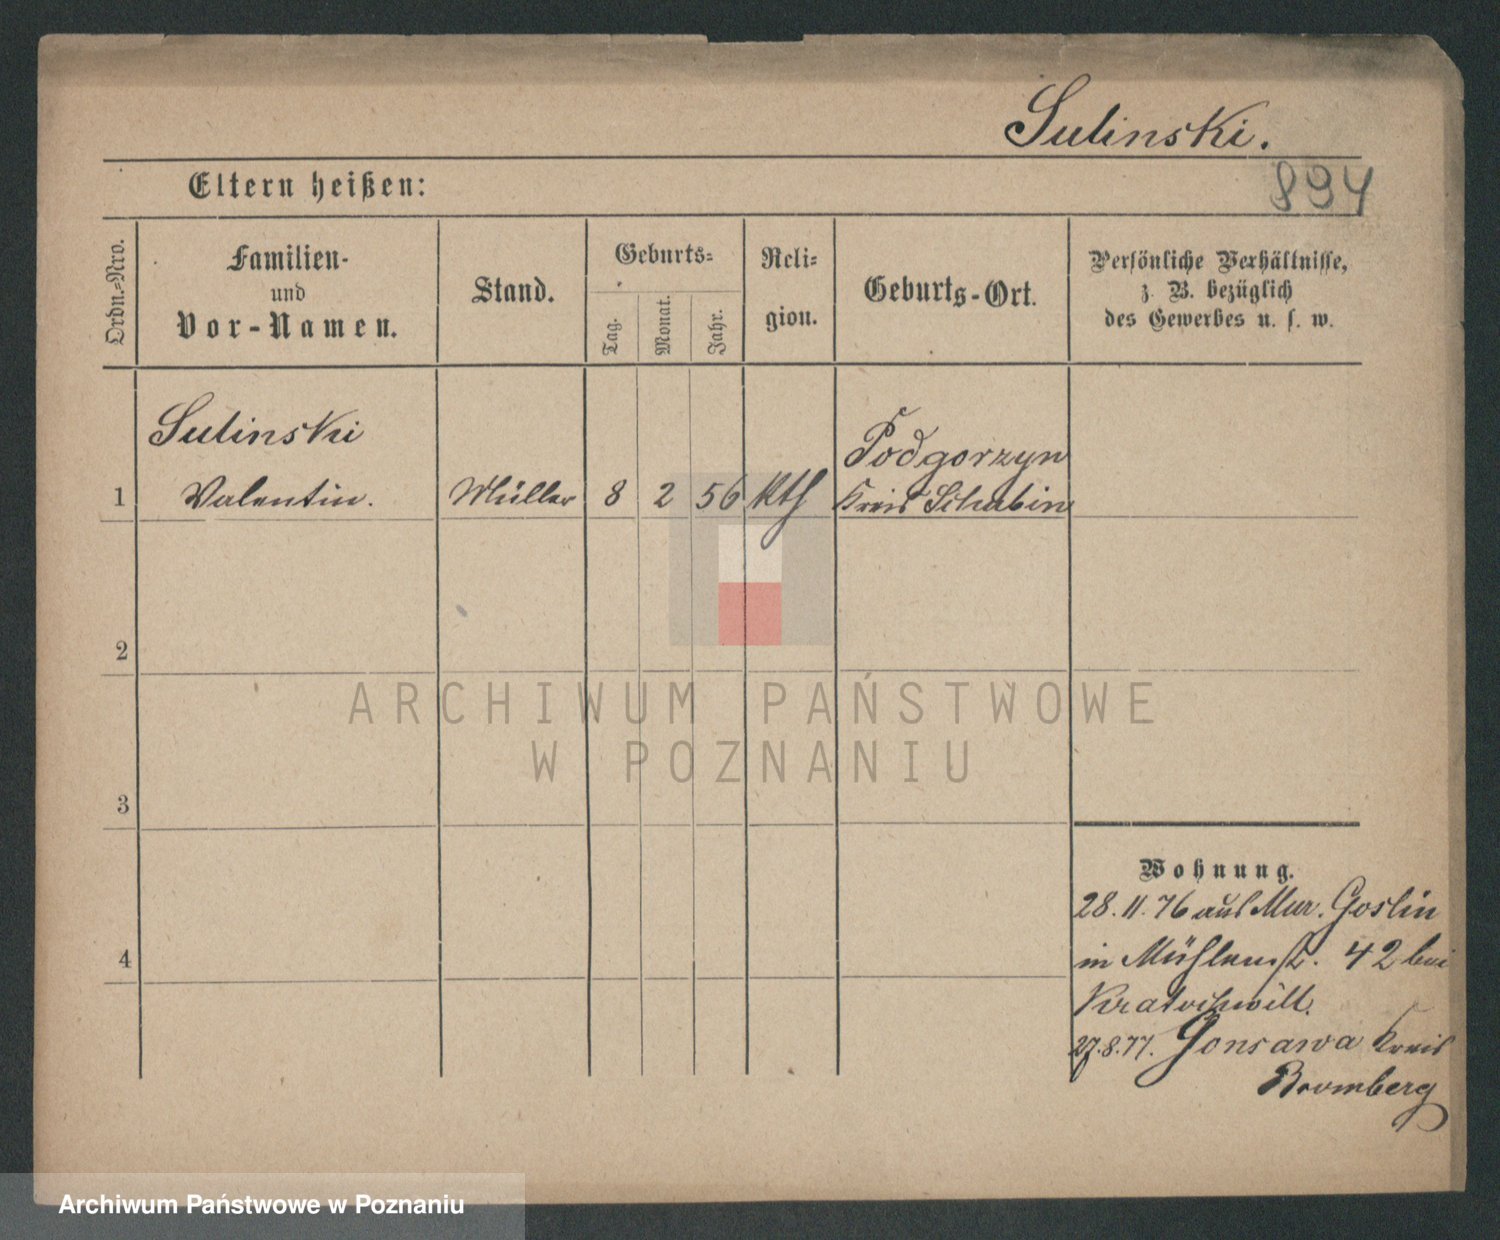 Sulinski.
Eltern heißen:
894
Ordn.-Nro.
Familien-
und
Vor-Namen.
Stand.
Geburts-
Tag.
Monat.
Jahr.
Reli-
gion.
Geburts-Ort.
Persönliche Verhältnisse,
z. B. bezüglich
des Gewerbes u. s. w.
Sulinski
Podgorzyn
1 Valentin. Müller 8 2 56 kth Kreis Schubin
2
ARCHIWUM PAŃSTWOWE
W POZNANIU
3
Wohnung.
28.11.76 aus Mur. Goslin
4
in Mühlenst. 42 bei
Kratochwill.
27.8.77. Gonsawa Kreis
Bromberg
Archiwum Państwowe w Poznaniu